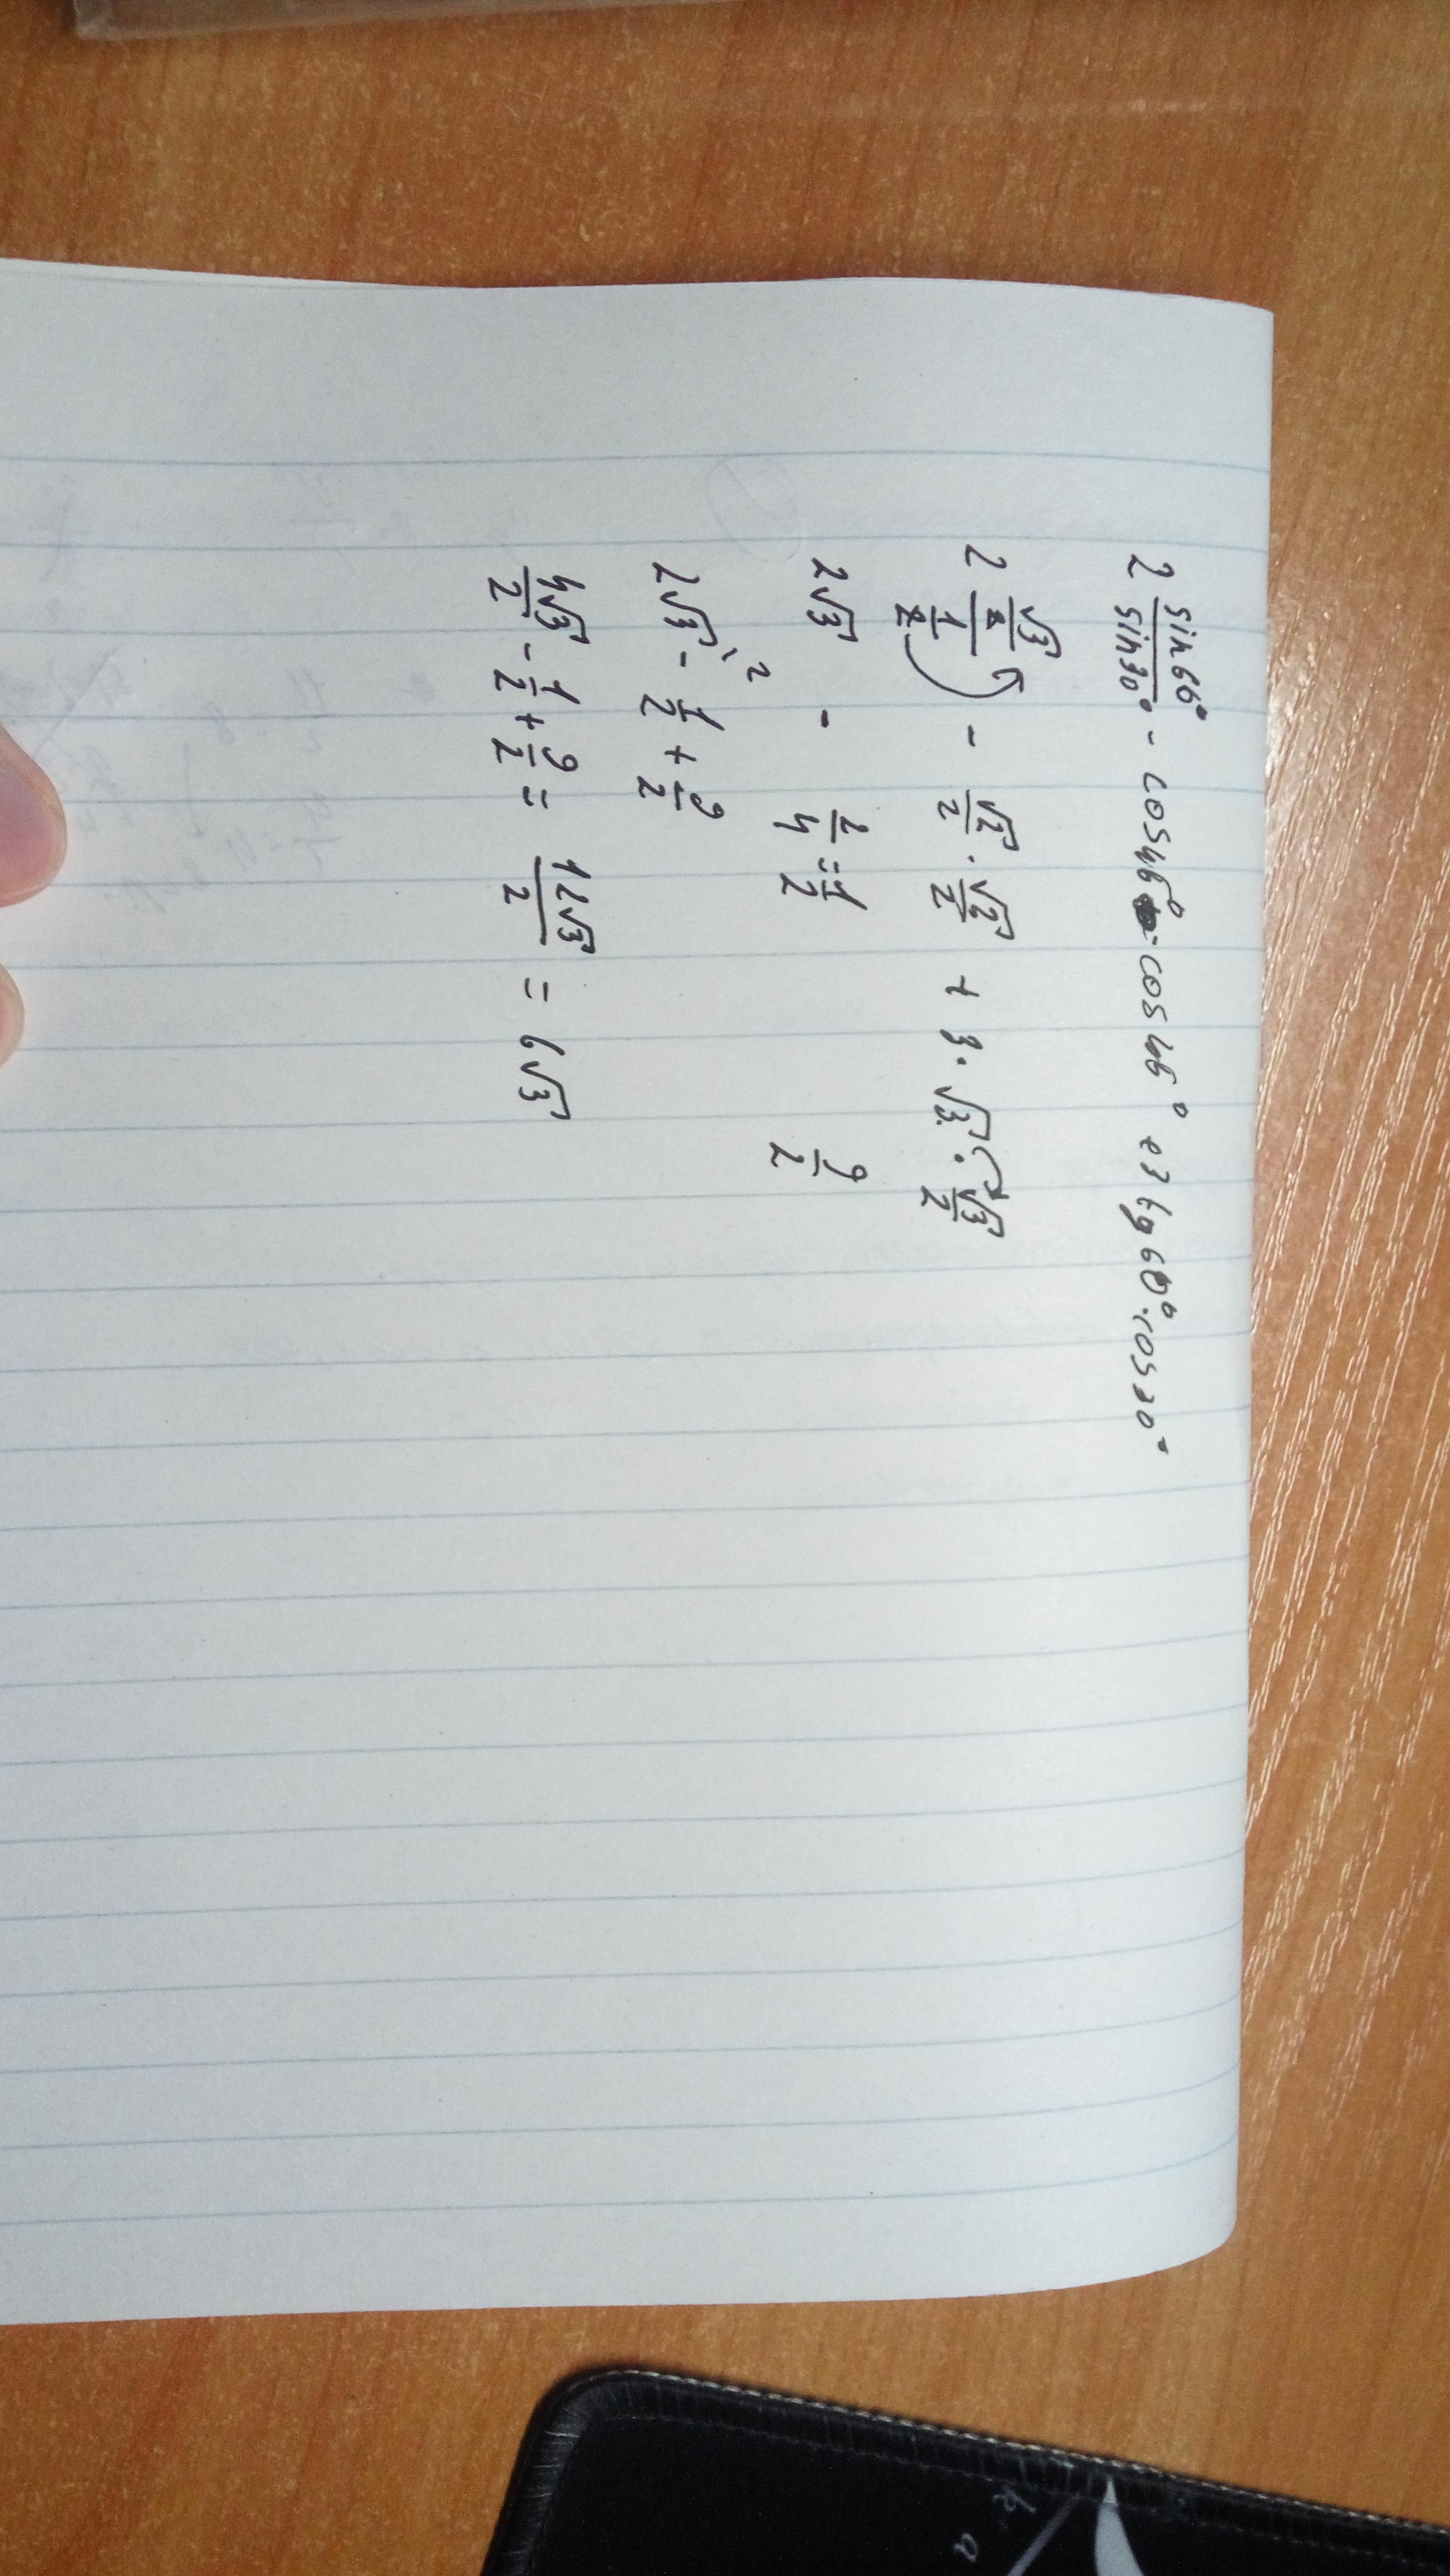 2 sin60°/sin30° - cos45° · cos45° + 3tg60° · cos30°
2 (√3/2)/(1/2) - √2/2 · √2/2 + 3 · √3 · √3/2
2√3 - 2/4 = 1/2 9/2
2√3^(12 - 1/2 + 9/2
4√3/2 - 1/2 + 9/2 = 12√3/2 = 6√3